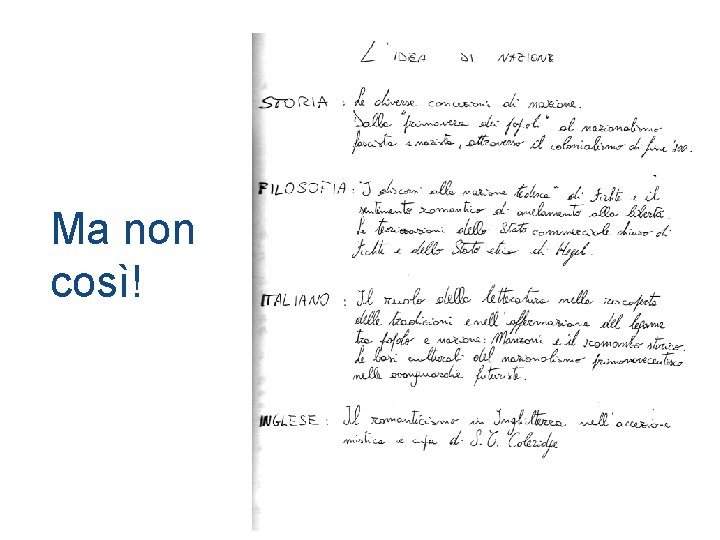 Ma non
così!
L'IDEA DI NAZIONE
STORIA : Le diverse concezioni di nazione.
Dalla "primavera dei popoli" al nazionalismo
fascista e nazista, attraverso il colonialismo di fine '800.
FILOSOFIA : "I discorsi alla nazione tedesca" di Fichte e il
sentimento romantico di anelamento alla libertà.
Le teorizzazioni dello Stato commerciale chiuso di
Fichte e dello Stato etico di Hegel.
ITALIANO : Il ruolo della letteratura nella riscoperta
delle tradizioni e nell'affermazione del legame
tra popolo e nazione: Manzoni e il romanzo storico.
Le basi culturali del nazionalismo primonovecentesco
nelle avanguardie futuriste.
INGLESE : Il romanticismo in Inghilterra nell'accezione
mistica e di S. T. Coleridge